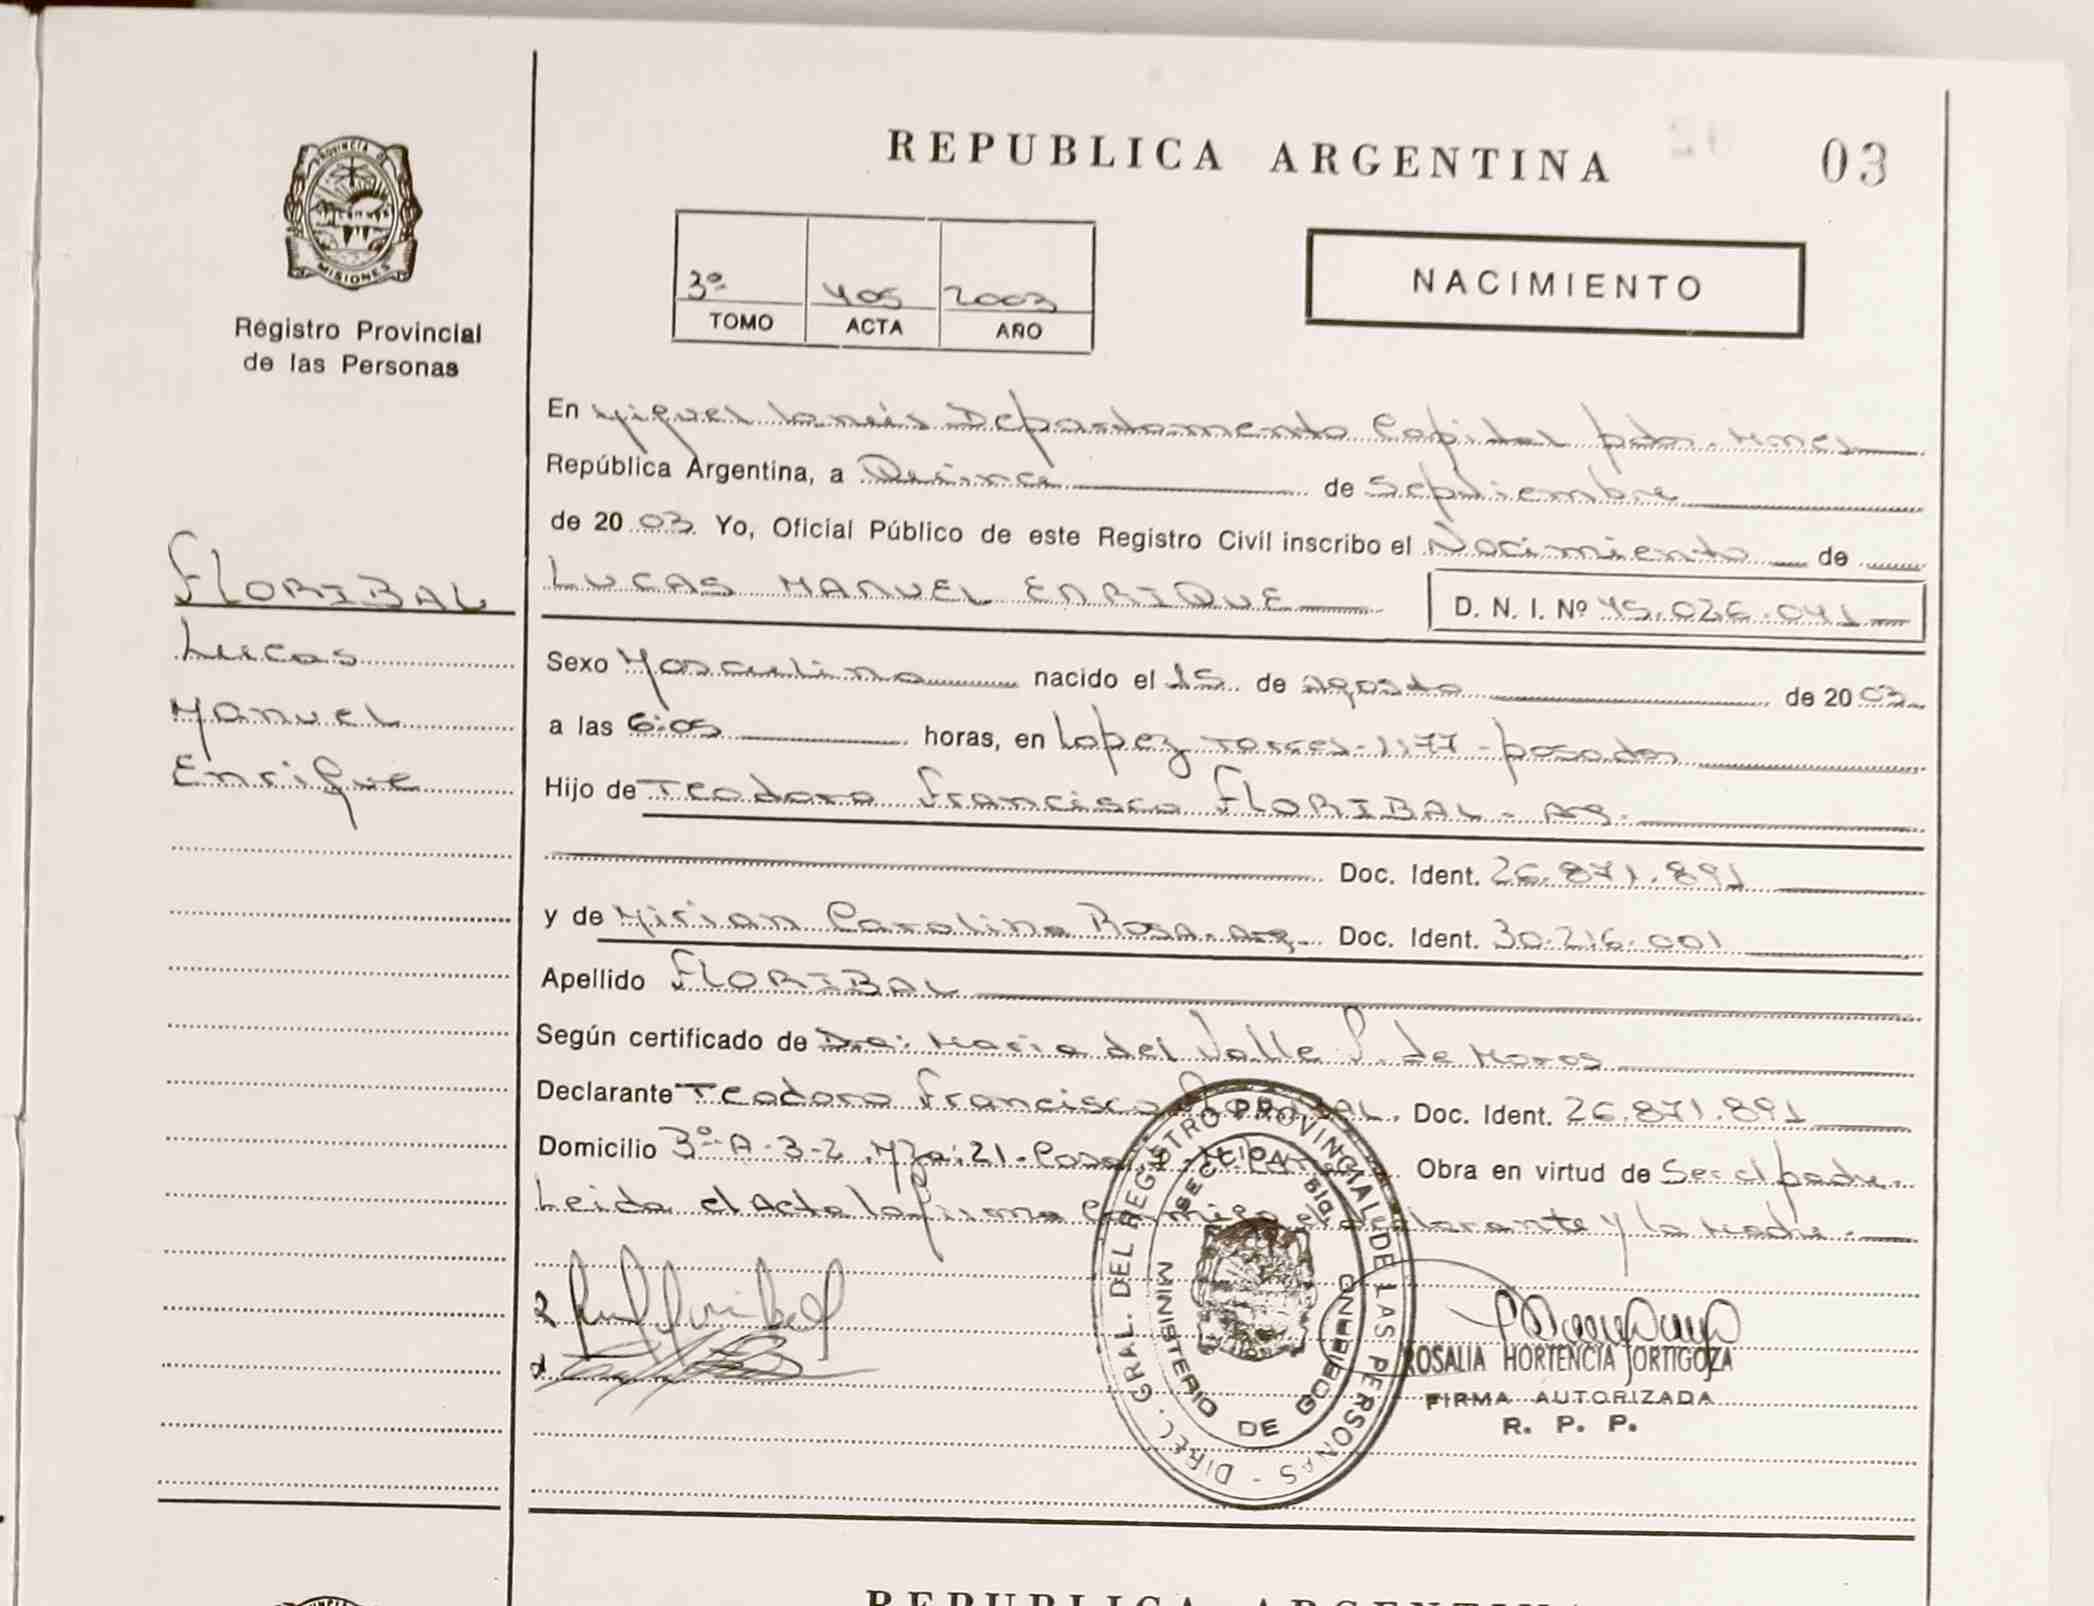 REPUBLICA ARGENTINA
03
PROVINCIA DE
MISIONES
Registro Provincial
de las Personas
3º 405 2003
TOMO ACTA AÑO
NACIMIENTO
En Miguel Lanús Departamento Capital pdas. Mnes
República Argentina, a Quince de Septiembre
de 2003 Yo, Oficial Público de este Registro Civil inscribo el Nacimiento de
LUCAS MANUEL ENRIQUE D. N. I. Nº 45.026.041
FLORIBAL
Lucas
Manuel
Enrique
Sexo Masculino nacido el 15 de agosto de 2003
a las 6:05 horas, en Lopez Torres-1177-posadas
Hijo de Teodoro Francisco FLORIBAL - Arg.
Doc. Ident. 26.871.891
y de Mirian Carolina ROSA. Arg. Doc. Ident. 30.216.001
Apellido FLORIBAL
Según certificado de Dra: Maria del Valle de Moros
Declarante Teodoro Francisco FLORIBAL. Doc. Ident. 26.871.891
Domicilio 3º-A-3-2. Mza:21- Obra en virtud de Ser el padre.
Leida el Acta la firma el declarante y la Madre.
DIREC. GRAL. DEL REGISTRO PROVINCIAL DE LAS PERSONAS
MINISTERIO DE GOBIERNO
ROSALIA HORTENCIA JORTIGOZA
FIRMA AUTORIZADA
R. P. P.
REPUBLICA ARGENTINA